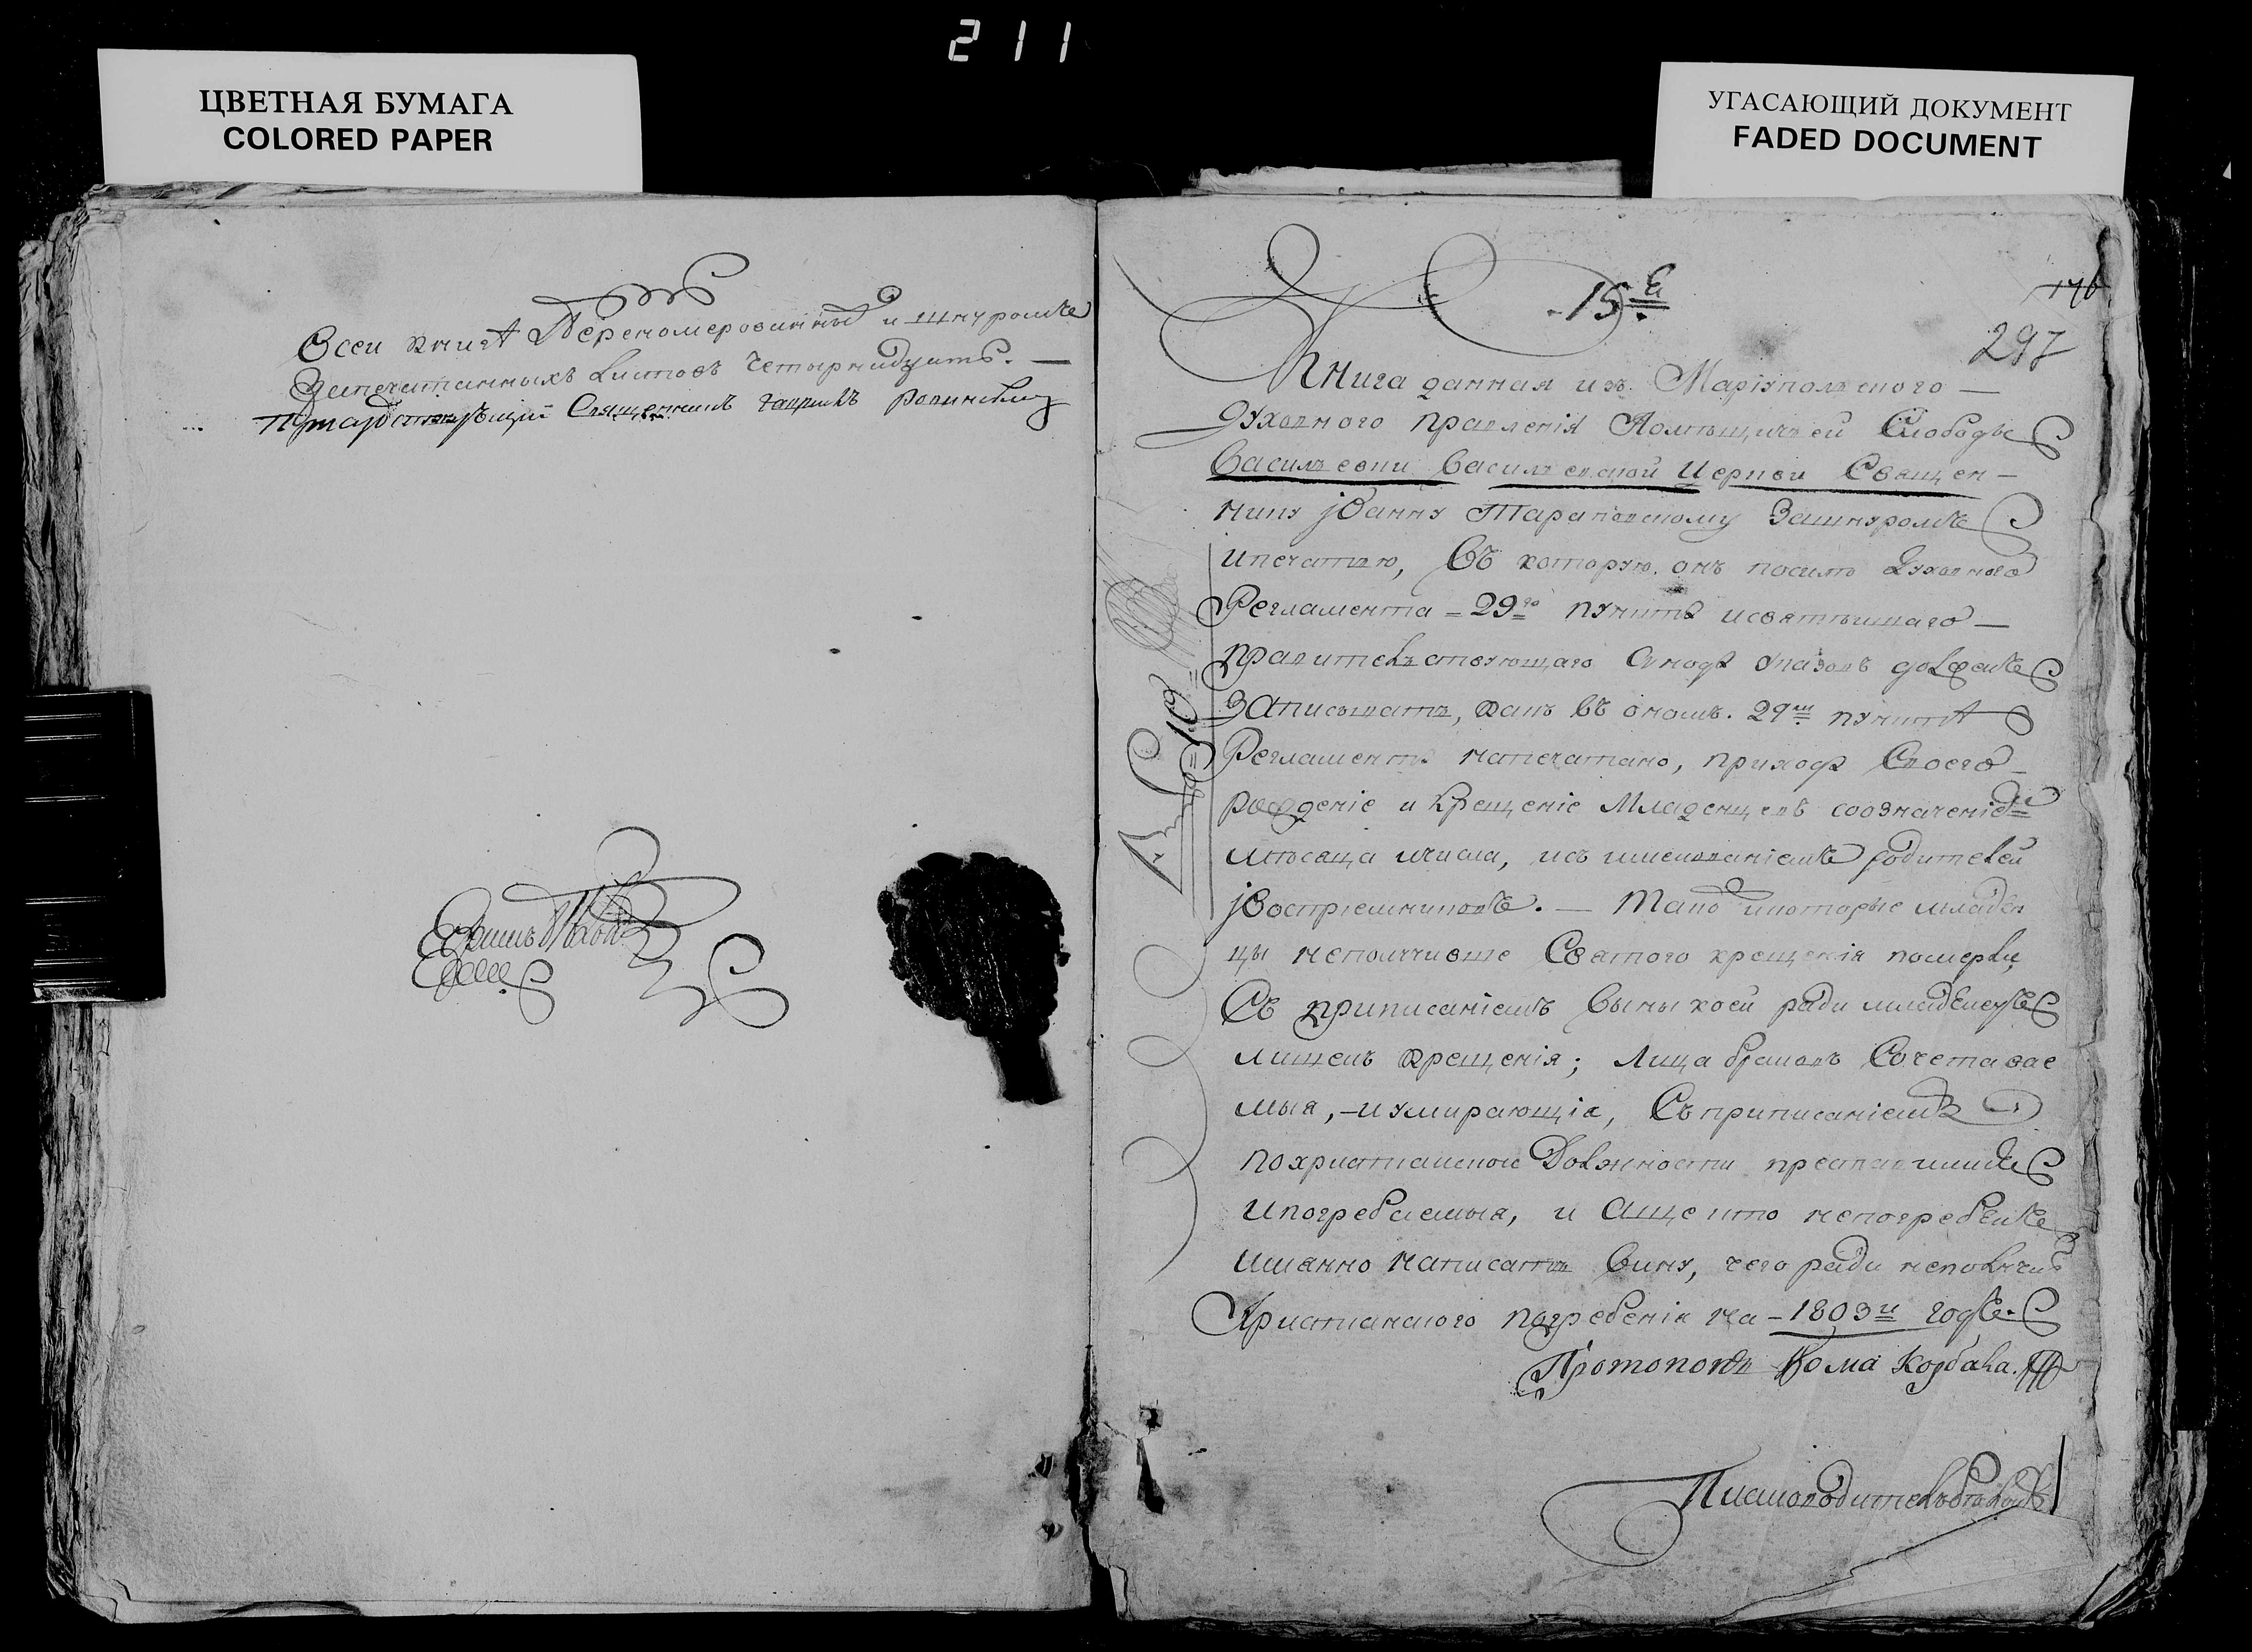 211
ЦВЕТНАЯ БУМАГА
COLORED PAPER
УГАСАЮЩИЙ ДОКУМЕНТ
FADED DOCUMENT
Всеи книгѣ Перенომерованныхъ и шнуромъ
Запечатанныхъ Листовъ Четырнадцать. —
Священникъ
15.
297
Книга данная изъ Маріупольского —
Духовного правления Помѣщичьей Слободы
Василъевки Василъевской Церкви Священ —
нику Іоанну Тарановскому Зашнуромъ
ипечатью, Въ которую онъ посилѣ Духовного
Регламента = 29го пункта исвятѣишаго —
правительствующаго Синода Указовъ долженъ
Записывать, какъ въ ономъ. 29мъ пунктѣ
Регламента напечатано, прихода Своего
рождение и крещение Младенцевъ соозначеніемъ
мѣсяца ичисла, исъ именованіемъ родителей
івосприемниковъ. — Такожъ икоторые младен
цы неполучивше Святого крещенія померли,
Съ приписаніемъ вины коей ради младенецъ
лишенъ крещенія; Лица бракомъ Сочетавае
мыя, — иумирающія, Съприписаніемъ
похристианской Должности преставшимся
ипогребаемыя, и аще кто непогребенъ
имянно написать вину, чего ради неполучилъ
Християнского погребенія на — 1803й годъ.
Протопопъ Фома Корбала.